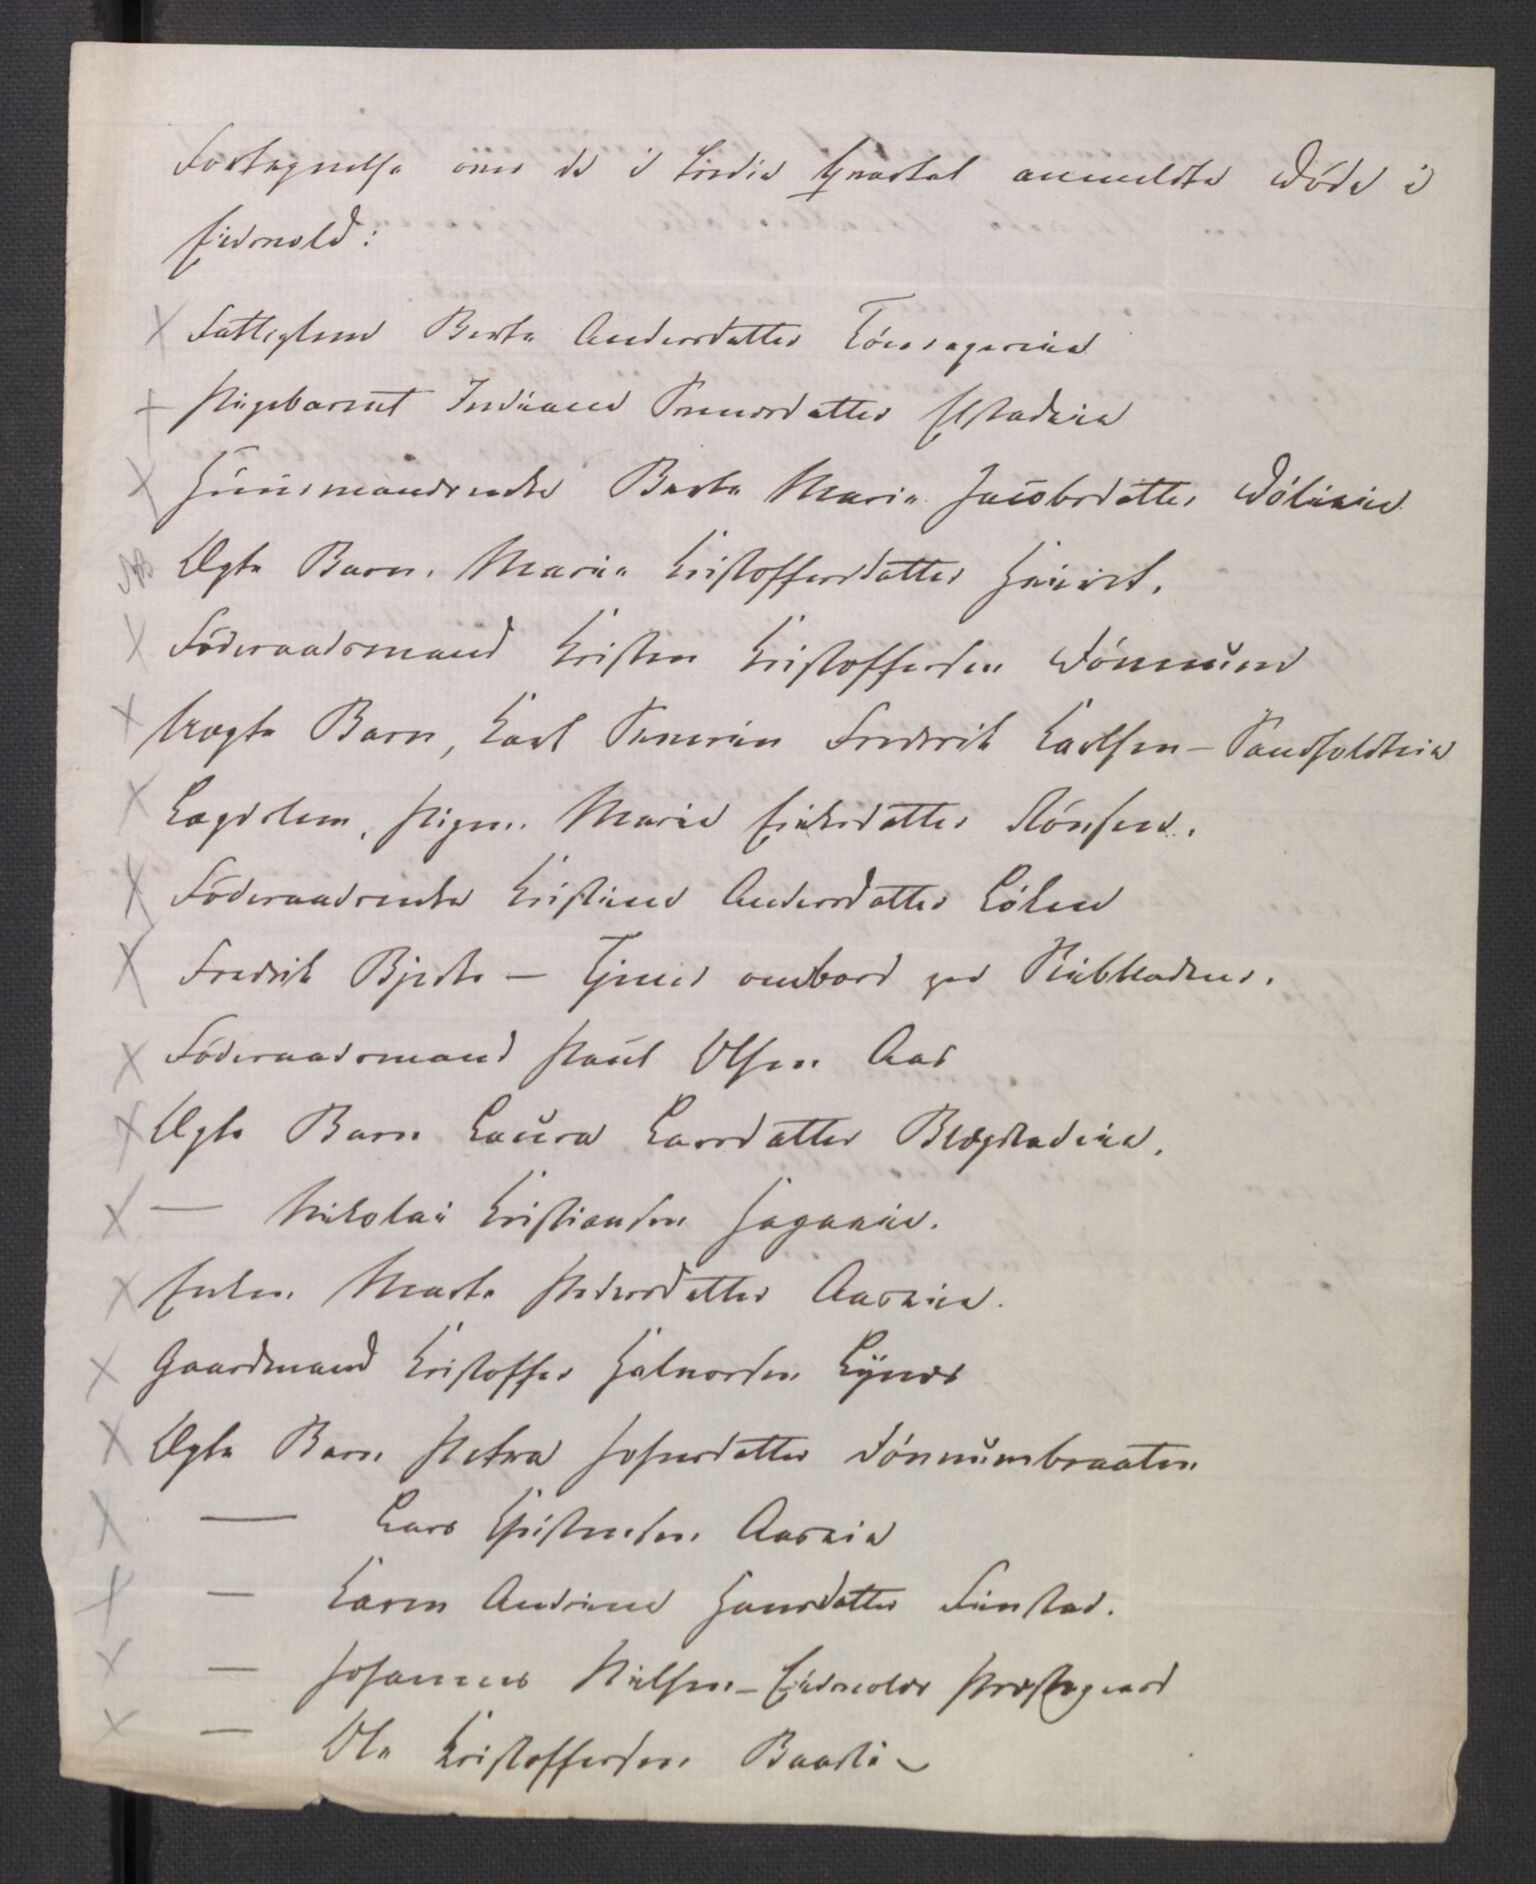 Fortegnelse over de i tredie Qvartal anmeldte Døde i
Eidsvold:
Fatteglem Berte Andersdatter
Pigebarnet Indiane Simensdatter Elstadeie
Huusmandsenke Berte Marie Jacobsdatter Døleneie
Ægte Barn. Maria Kristoffersdatter
Føderaadsmand Kristen Kristoffersen Dønnum
Uægte Barn, Karl Severin Fredrik Karlsen – Sandholdteie
Lægdslem, Pigen Marie Eriksdatter
Føderaadsenke Kristine Andersdatter Løken
Fredrik Bjerke – Tjener ombord paa Skibladner.
Føderaadsmand Paul Olsen Aas
Ægte Barn Laura Larsdatter Bløgstadeie.
— Nikolai Kristiansen Hagaeie.
Enken Marte Pedersdatter Aaseie.
Gaardmand Kristoffer Halvorsen Lynes
Ægte Barn Petra Johnsdatter Dønnumbraaten
— Lars Kristensen Aaseie
— Karen Andrine Hansdatter Finstad.
— Johannes Nilsen – Eidsvolds Præstegaard
— Ole Kristoffersen Baarli